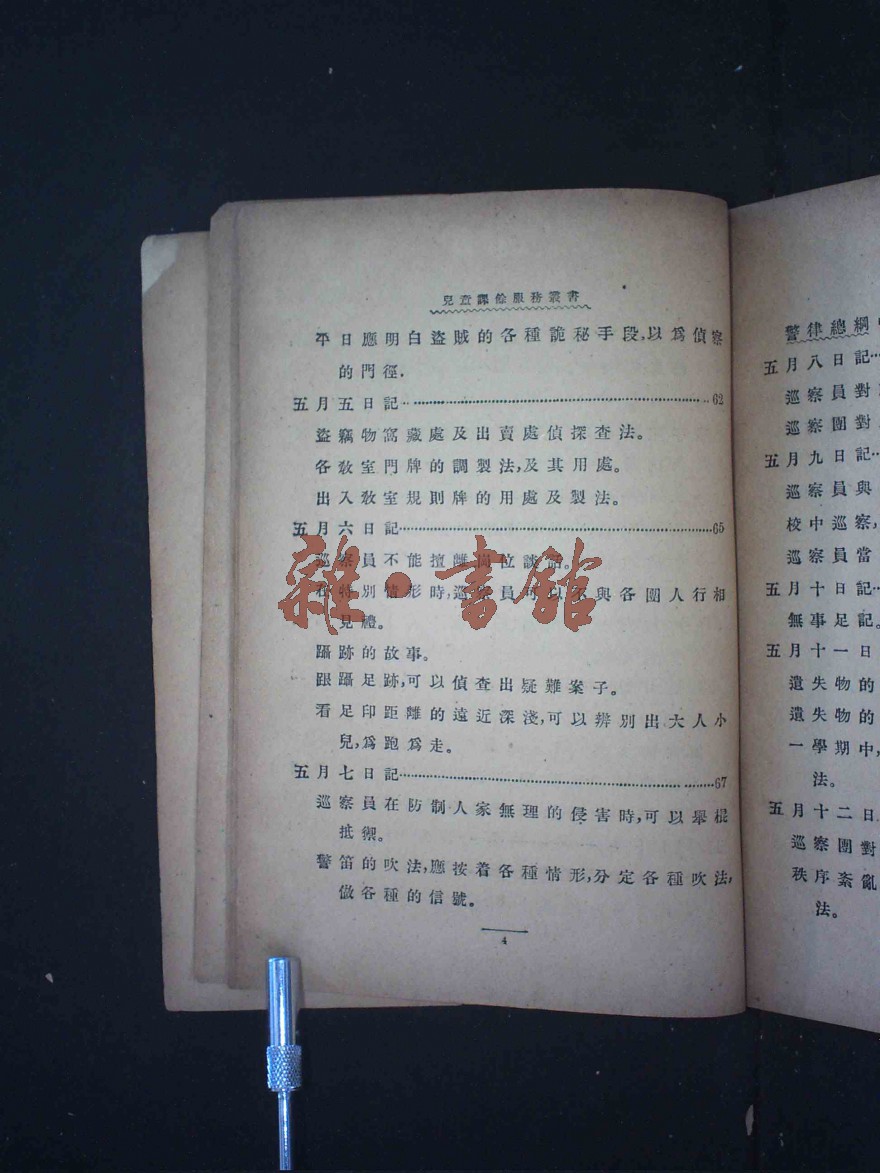 兒童課餘服務叢書
平日應明白盜賊的各種詭秘手段,以爲偵察
的門徑.
五月五日記……62
盜竊物窩藏處及出賣處偵探查法。
各敎室門牌的調製法,及其用處。
出入敎室規則牌的用處及製法。
五月六日記……65
巡察員不能擅離崗位談話。
在特別情形時,巡察員可以不與各團人行相
見禮。
躡跡的故事。
跟躡足跡,可以偵查出疑難案子。
看足印距離的遠近深淺,可以辨別出大人小
兒,爲跑爲走。
五月七日記……67
巡察員在防制人家無理的侵害時,可以舉棍
抵禦。
警笛的吹法,應按着各種情形,分定各種吹法,
做各種的信號。
4
雜·書館
警律總綱
五月八日記…
巡察員對
巡察團對
五月九日記…
巡察員與
校中巡察,
巡察員當
五月十日記…
無事足記。
五月十一日
遺失物的
遺失物的
一學期中,
法。
五月十二日
巡察團對
秩序紊亂
法。